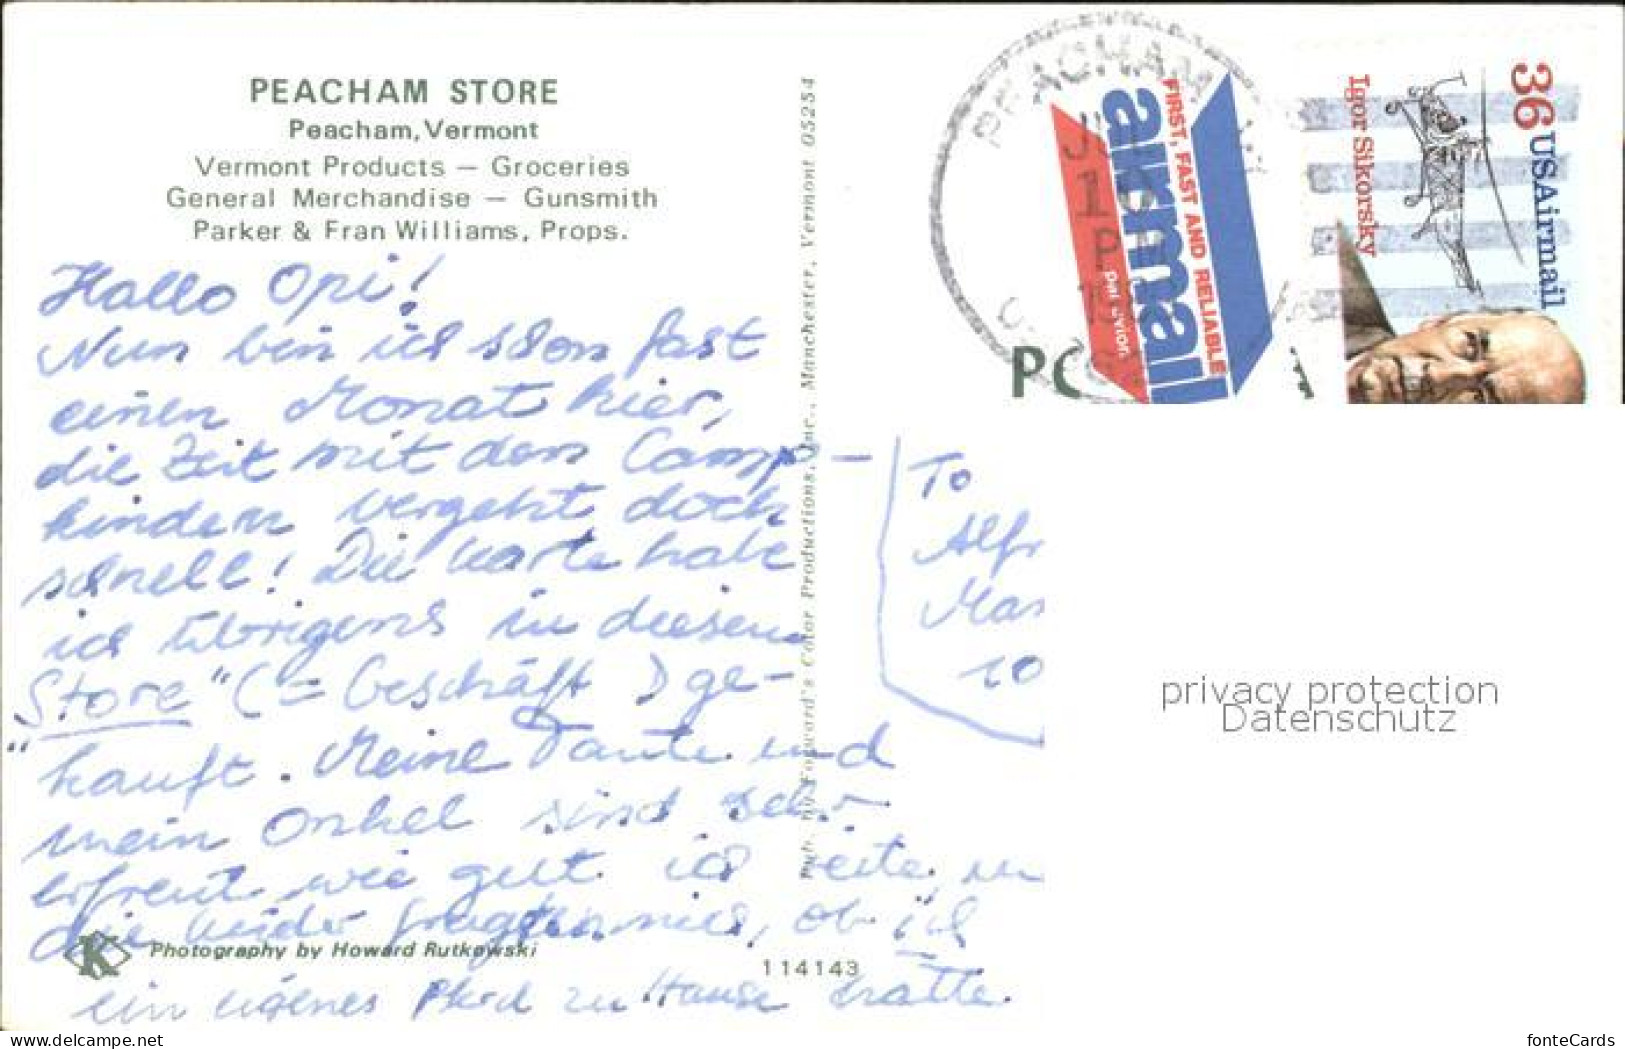 PEACHAM STORE
Peacham, Vermont
Vermont Products — Groceries
General Merchandise — Gunsmith
Parker & Fran Williams, Props.
Hallo Opi!
Nun bin ich schon fast
einen Monat hier,
die Zeit mit den Camp-
kindern vergeht doch
schnell! Die Karte habe
ich übrigens in diesem
"Store" (= Geschäft) ge-
kauft. Meine Tante und
mein Onkel sind sehr
erfreut wie gut ich reite, un
die Kinder fragten mich, ob ich
ein eigenes Pferd zu Hause hätte.
Photography by Howard Rutkowski
114143
Pub. by Forward's Color Productions, Inc., Manchester, Vermont 05254
PEACHAM
1
PM
FIRST, FAST AND RELIABLE
airmail
par avion
PO
36 USAirmail
Igor Sikorsky
To
Alfr
Mas
10
privacy protection
Datenschutz
www.delcampe.net
fonteCards